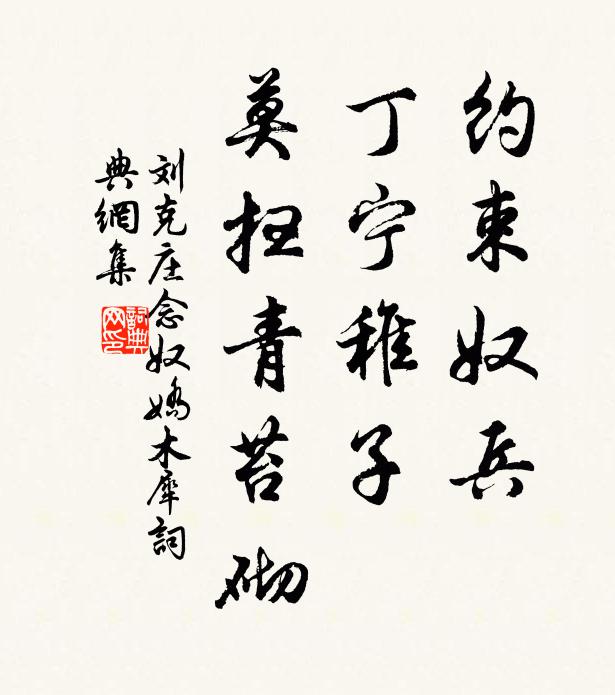 约束奴兵
丁宁稚子
莫扫青苔砌
刘克庄念奴嬌木犀詞
典網集
詞典
网印